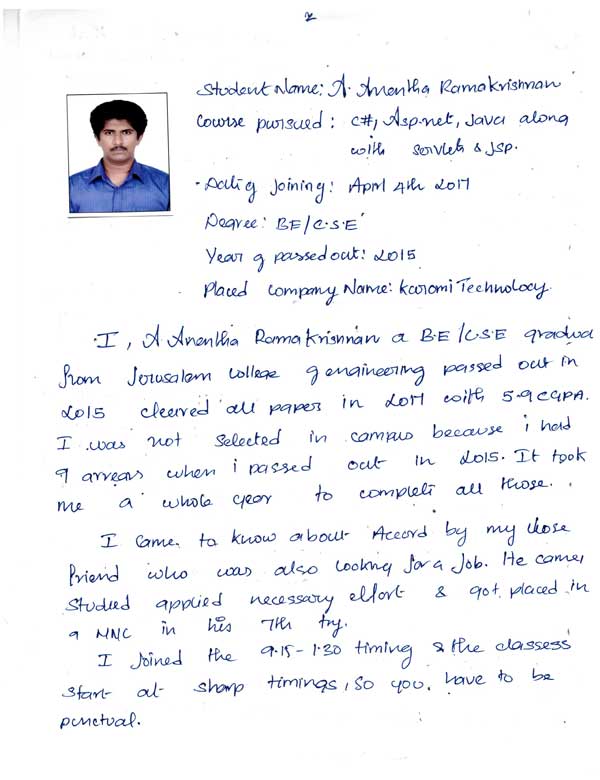 2
Student Name: A. Anantha Ramakrishnan
Course pursued: C#, Asp.net, Java along
with servlets & JSP.
Date of Joining: April 4th 2017
Degree: BE/C.S.E
Year of passed out: 2015
Placed Company Name: Karomi Technology.
I, A Anantha Ramakrishnan a B.E/C.S.E gradua
from Jerusalem college of engineering passed out in
2015 cleared all paper in 2017 with 5.9 CGPA.
I was not selected in campus because i had
9 arrears when i passed out in 2015. It took
me a whole year to complete all those.
I came to know about Accord by my close
friend who was also looking for a Job. He came,
studied applied necessary effort & got placed in
a MNC in his 7th try.
I Joined the 9.15-1.30 timing & the classess
start at sharp timings, so you have to be
punctual.